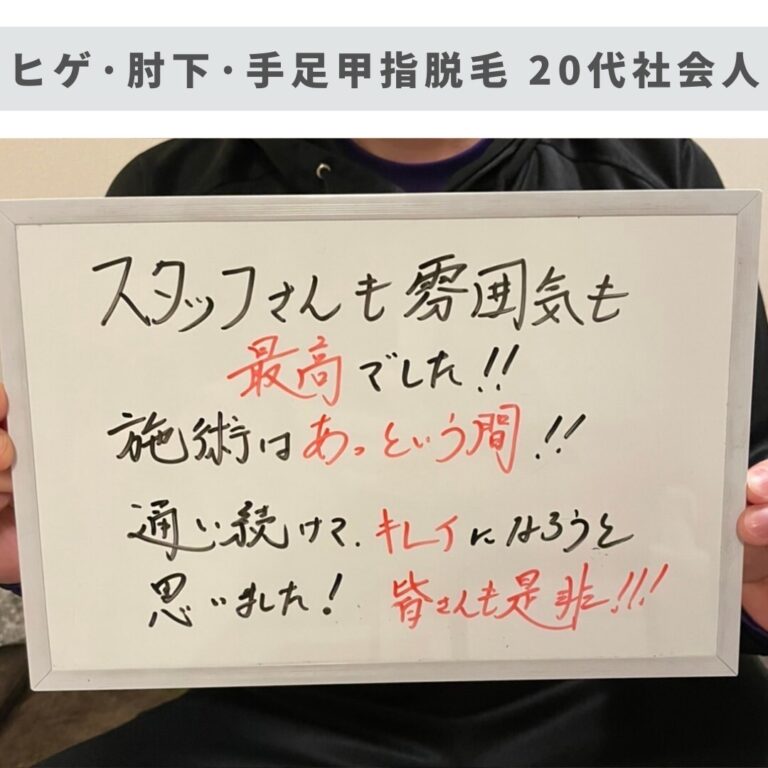 ヒゲ·肘下·手足甲指脱毛 20代社会人
スタッフさんも雰囲気も
最高でした!!
施術はあっという間!!
通い続けて、キレイになろうと
思いました! 皆さんも是非!!!